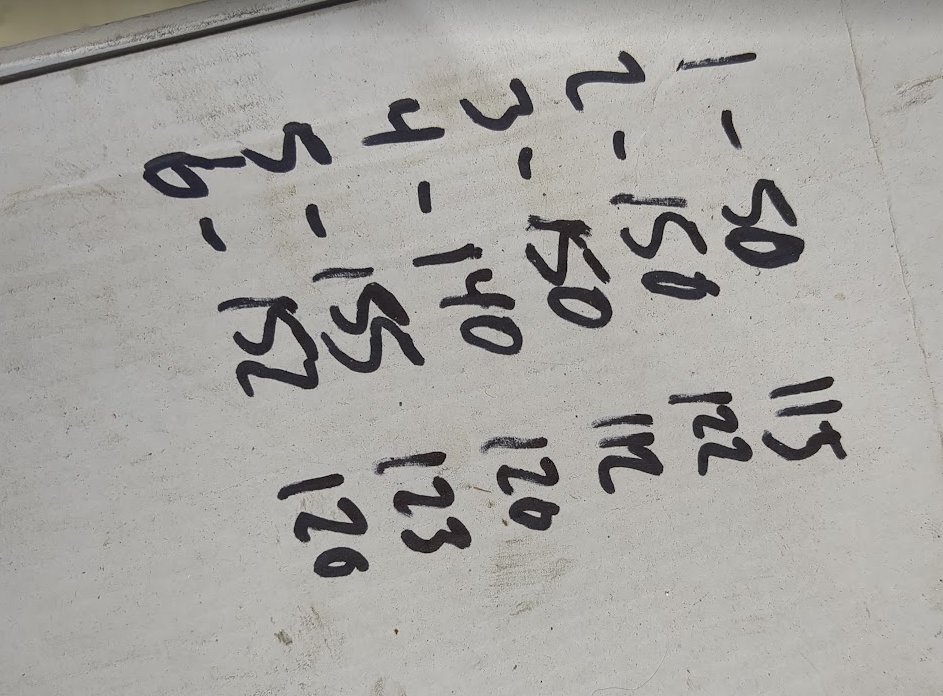 1 - 50 115
2 - 150 122
3 - 150 112
4 - 140 120
5 - 155 123
6 - 152 126